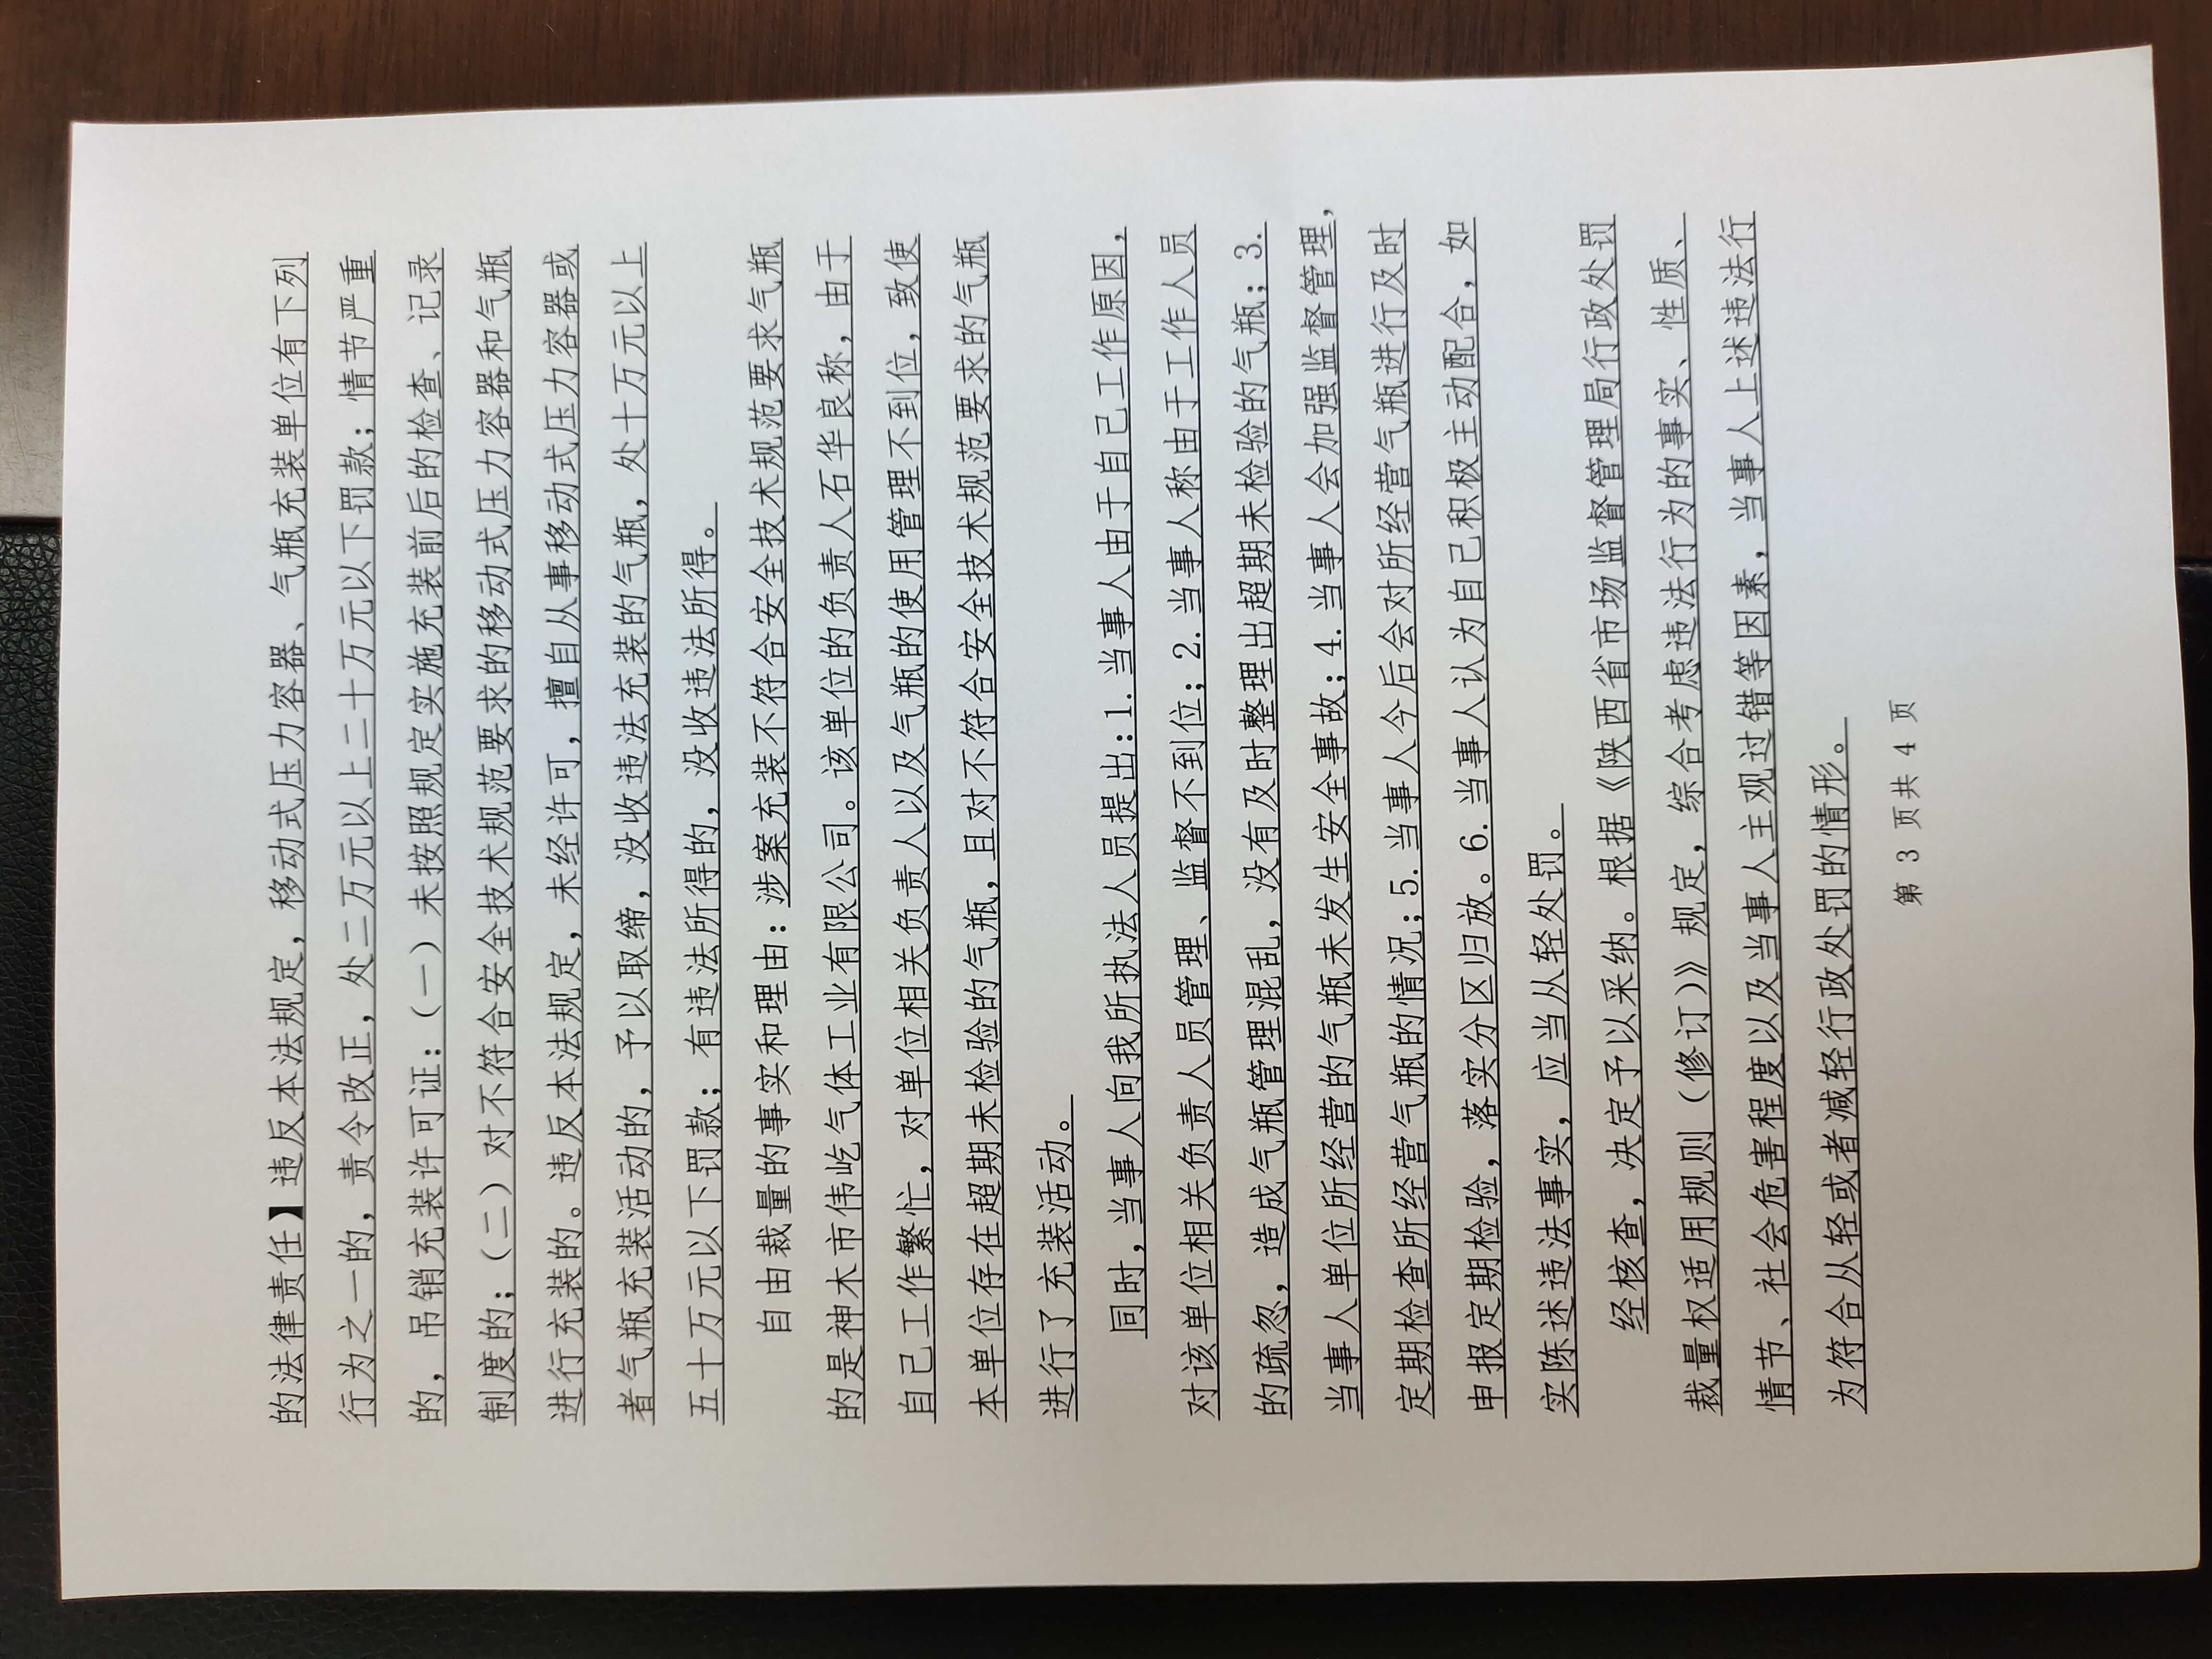 的法律责任】违反本法规定，移动式压力容器、气瓶充装单位有下列
行为之一的，责令改正，处二万元以上二十万元以下罚款；情节严重
的，吊销充装许可证：（一）未按照规定实施充装前后的检查、记录
制度的；（二）对不符合安全技术规范要求的移动式压力容器和气瓶
进行充装的。违反本法规定，未经许可，擅自从事移动式压力容器或
者气瓶充装活动的，予以取缔，没收违法充装的气瓶，处十万元以上
五十万元以下罚款；有违法所得的，没收违法所得。
自由裁量的事实和理由：涉案充装不符合安全技术规范要求气瓶
的是神木市伟屹气体工业有限公司。该单位的负责人石华良称，由于
自己工作繁忙，对单位相关负责人以及气瓶的使用管理不到位，致使
本单位存在超期未检验的气瓶，且对不符合安全技术规范要求的气瓶
进行了充装活动。
同时，当事人向我所执法人员提出：1.当事人由于自己工作原因，
对该单位相关负责人员管理、监督不到位；2.当事人称由于工作人员
的疏忽，造成气瓶管理混乱，没有及时整理出超期未检验的气瓶；3.
当事人单位所经营的气瓶未发生安全事故；4.当事人会加强监督管理，
定期检查所经营气瓶的情况；5.当事人今后会对所经营气瓶进行及时
申报定期检验，落实分区归放。6.当事人认为自己积极主动配合，如
实陈述违法事实，应当从轻处罚。
经核查，决定予以采纳。根据《陕西省市场监督管理局行政处罚
裁量权适用规则（修订）》规定，综合考虑违法行为的事实、性质、
情节、社会危害程度以及当事人主观过错等因素，当事人上述违法行
为符合从轻或者减轻行政处罚的情形。
第 3 页共 4 页